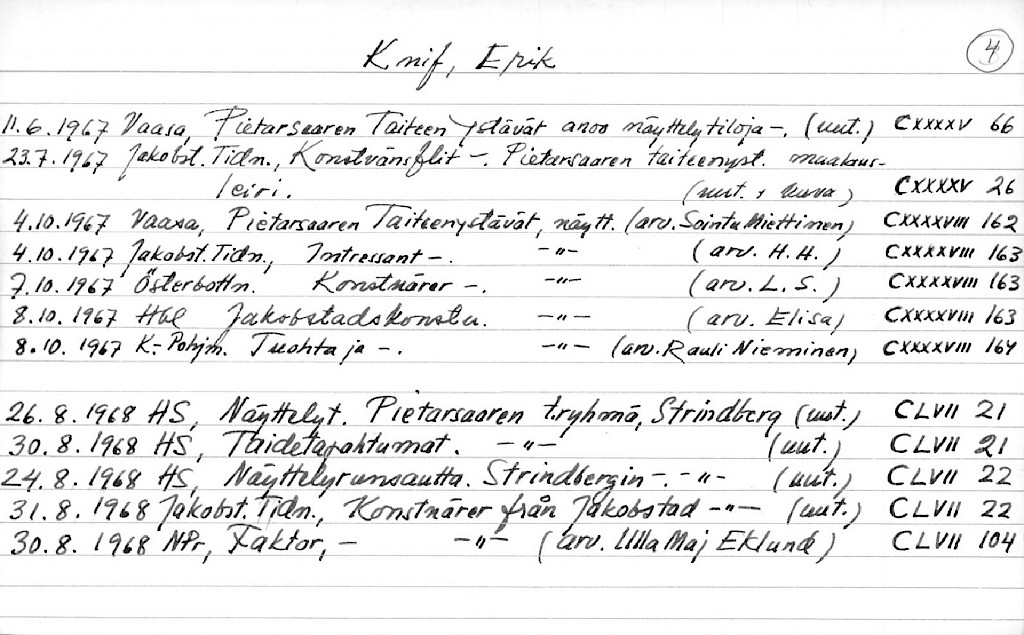 Knif, Erik
4
11.6.1967 Vaasa, Pietarsaaren Taiteen ystävät anoo näyttelytiloja -. (uut.) CXXXXV 66
23.7.1967 Jakobst. Tidn., Konstvänsflit -. Pietarsaaren taiteenyst. maalaus-
leiri. (uut. + kuva) CXXXXV 26
4.10.1967 Vaasa, Pietarsaaren Taiteenystävät, näytt. (arv. Sointu Miettinen) CXXXXVIII 162
4.10.1967 Jakobst. Tidn., Intressant -. -"- (arv. H.H.) CXXXXVIII 163
7.10.1967 Österbottn. Konstnärer -. -"- (arv. L.S.) CXXXXVIII 163
8.10.1967 Hbl Jakobstadskonstn. -"- (arv. Elisa) CXXXXVIII 163
8.10.1967 K.-Pohjm. Tuohta ja -. -"- (arv. Rauli Nieminen) CXXXXVIII 164
26.8.1968 HS, Näyttelyt. Pietarsaaren t.ryhmä, Strindberg (uut.) CLVII 21
30.8.1968 HS, Taidetapahtumat. -"- (uut.) CLVII 21
24.8.1968 HS, Näyttelyrunsautta. Strindbergin -. -"- (uut.) CLVII 22
31.8.1968 Jakobst. Tidn., Konstnärer från Jakobstad -"- (uut.) CLVII 22
30.8.1968 NPr, Faktor, - -"- (arv. Ulla Maj Eklund) CLVII 104